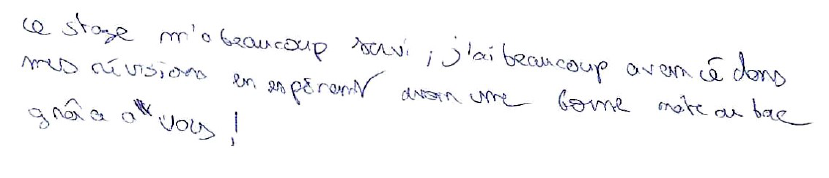 Ce stage m'a beaucoup servi ; j'ai beaucoup avancé dans
mes révisions en espérant avoir une bonne note au bac
grâce à vous !